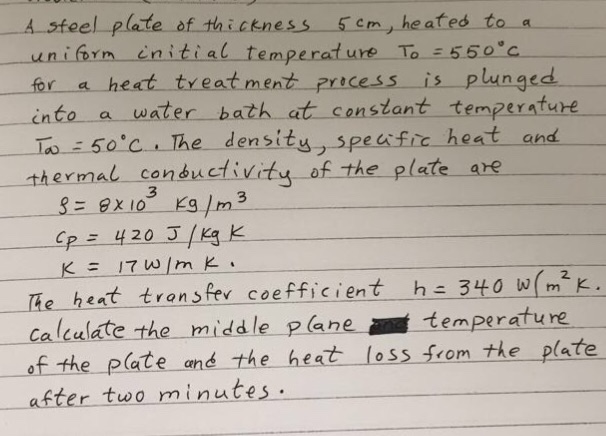 A steel plate of thickness 5 cm, heated to a
uniform initial temperature To = 550°C
for a heat treatment process is plunged
into a water bath at constant temperature
T∞ = 50°C. The density, specific heat and
thermal conductivity of the plate are
ρ = 8×10³ Kg/m³
Cp = 420 J/kg K
K = 17 W/m K.
The heat transfer coefficient h = 340 W/m² K.
Calculate the middle plane temperature
of the plate and the heat loss from the plate
after two minutes.